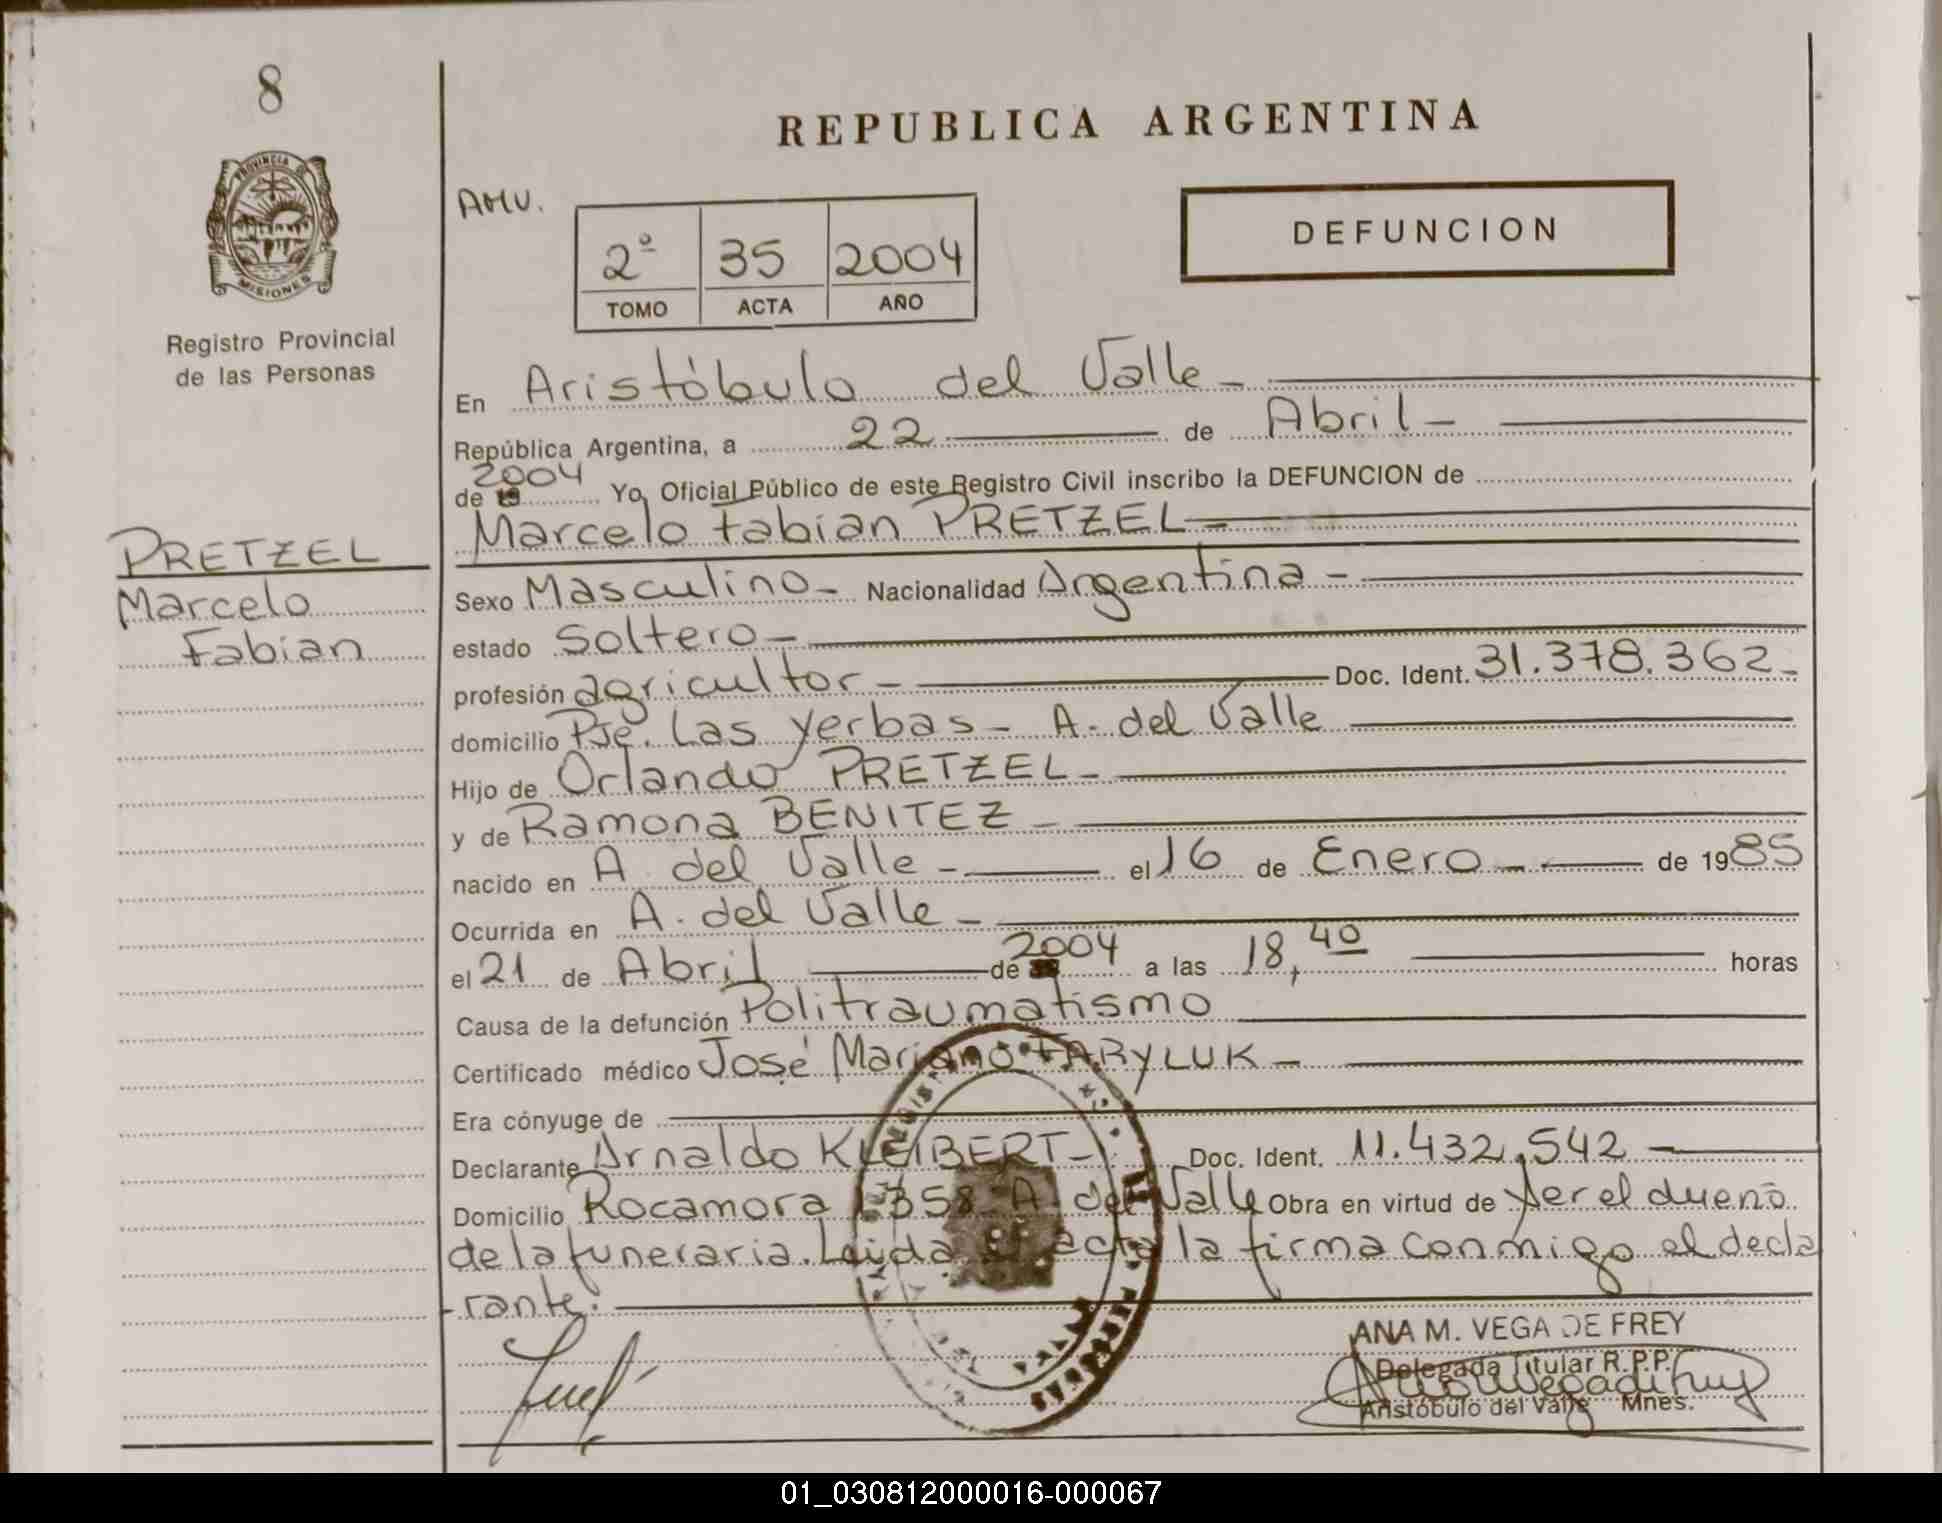 8
PROVINCIA DE
MISIONES
Registro Provincial
de las Personas
PRETZEL
Marcelo
Fabian
REPUBLICA ARGENTINA
AMV.
2º 35 2004
TOMO ACTA AÑO
DEFUNCION
En Aristóbulo del Valle -
República Argentina, a 22 de Abril -
de 19 2004 Yo, Oficial Público de este Registro Civil inscribo la DEFUNCION de
Marcelo Fabian PRETZEL -
Sexo Masculino - Nacionalidad Argentina -
estado Soltero -
profesión agricultor - Doc. Ident. 31.378.362 -
domicilio Pje. Las Yerbas - A. del Valle
Hijo de Orlando PRETZEL -
y de Ramona BENITEZ -
nacido en A. del Valle - el 16 de Enero - de 1985
Ocurrida en A. del Valle -
el 21 de Abril de 2004 a las 18,40 horas
Causa de la defunción Politraumatismo
Certificado médico José Mariano TARYLUK -
Era cónyuge de
Declarante Arnaldo KLEIBERT - Doc. Ident. 11.432.542
Domicilio Rocamora 1358 A. del Valle Obra en virtud de ser el dueño
de la funeraria. Leida el acta la firma conmigo el decla
-rante.
ANA M. VEGA DE FREY
Delegada Titular R.P.P.
Aristóbulo del Valle Mnes.
01_030812000016-000067